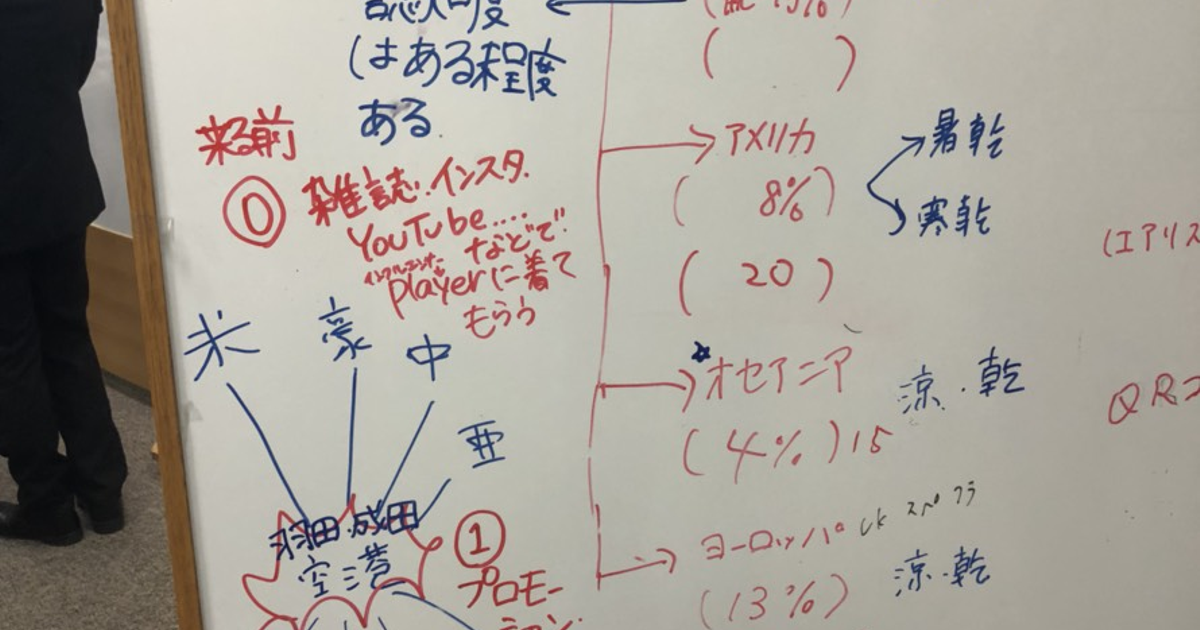 認知度
(はある程度
ある
来る前
⓪ 雑誌・インスタ.
YouTube....
などで
インフルエンサー
playerに着て
もらう
米 豪 中
亜
羽田・成田
空港
①
プロモー
ション.
(     )
アメリカ
( 8%)
暑乾
寒乾
( 20 )
オセアニア
涼・乾
(4%)15
ヨーロッパ
(13%)
涼・乾
(エアリス
QRコ